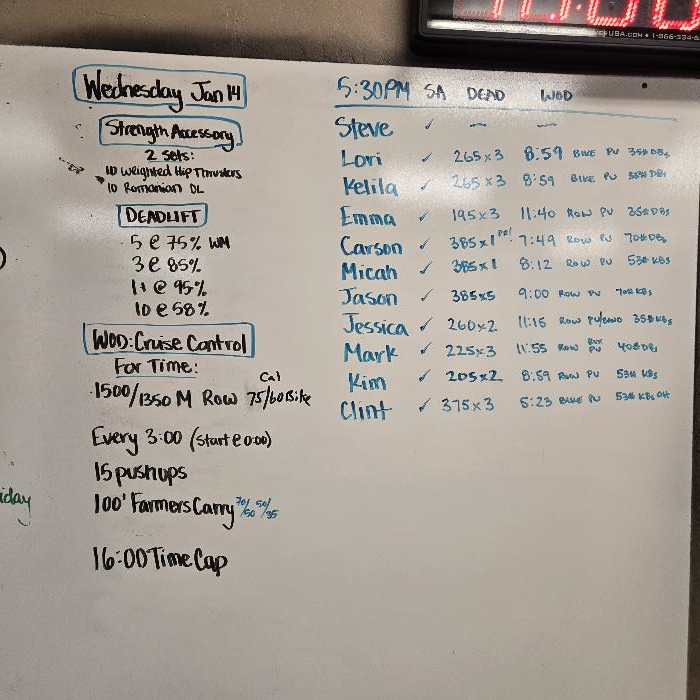 Wednesday Jan 14
Strength Accessory
2 Sets:
10 Weighted Hip Thrusters
10 Romanian DL
DEADLIFT
5 @ 75% WM
3 @ 85%
1+ @ 95%
10 @ 58%
WOD: Cruise Control
For Time:
1500/1350 M Row 75/60 Cal Bike
Every 3:00 (start @ 0:00)
15 pushups
100' Farmers Carry 70/50 50/35
16:00 Time Cap
5:30PM SA DEAD WOD
Steve ✓ — —
Lori ✓ 265x3 8:59 BIKE PU 35# DBs
Kelila ✓ 265x3 8:59 BIKE PU 35# DBs
Emma ✓ 195x3 11:40 ROW PU 35# DBs
Carson ✓ 385x1 PR! 7:49 ROW PU 70# DBs
Micah ✓ 385x1 8:12 ROW PU 53# KBs
Jason ✓ 385x5 9:00 ROW PU 70# KBs
Jessica ✓ 260x2 11:15 ROW PU/BAND 35# KBs
Mark ✓ 225x3 11:55 ROW BOX PU 40# DBs
Kim ✓ 205x2 8:59 ROW PU 53# KBs
Clint ✓ 375x3 5:23 BIKE PU 53# KBs OH
iday
USA.COM • 1-866-334-